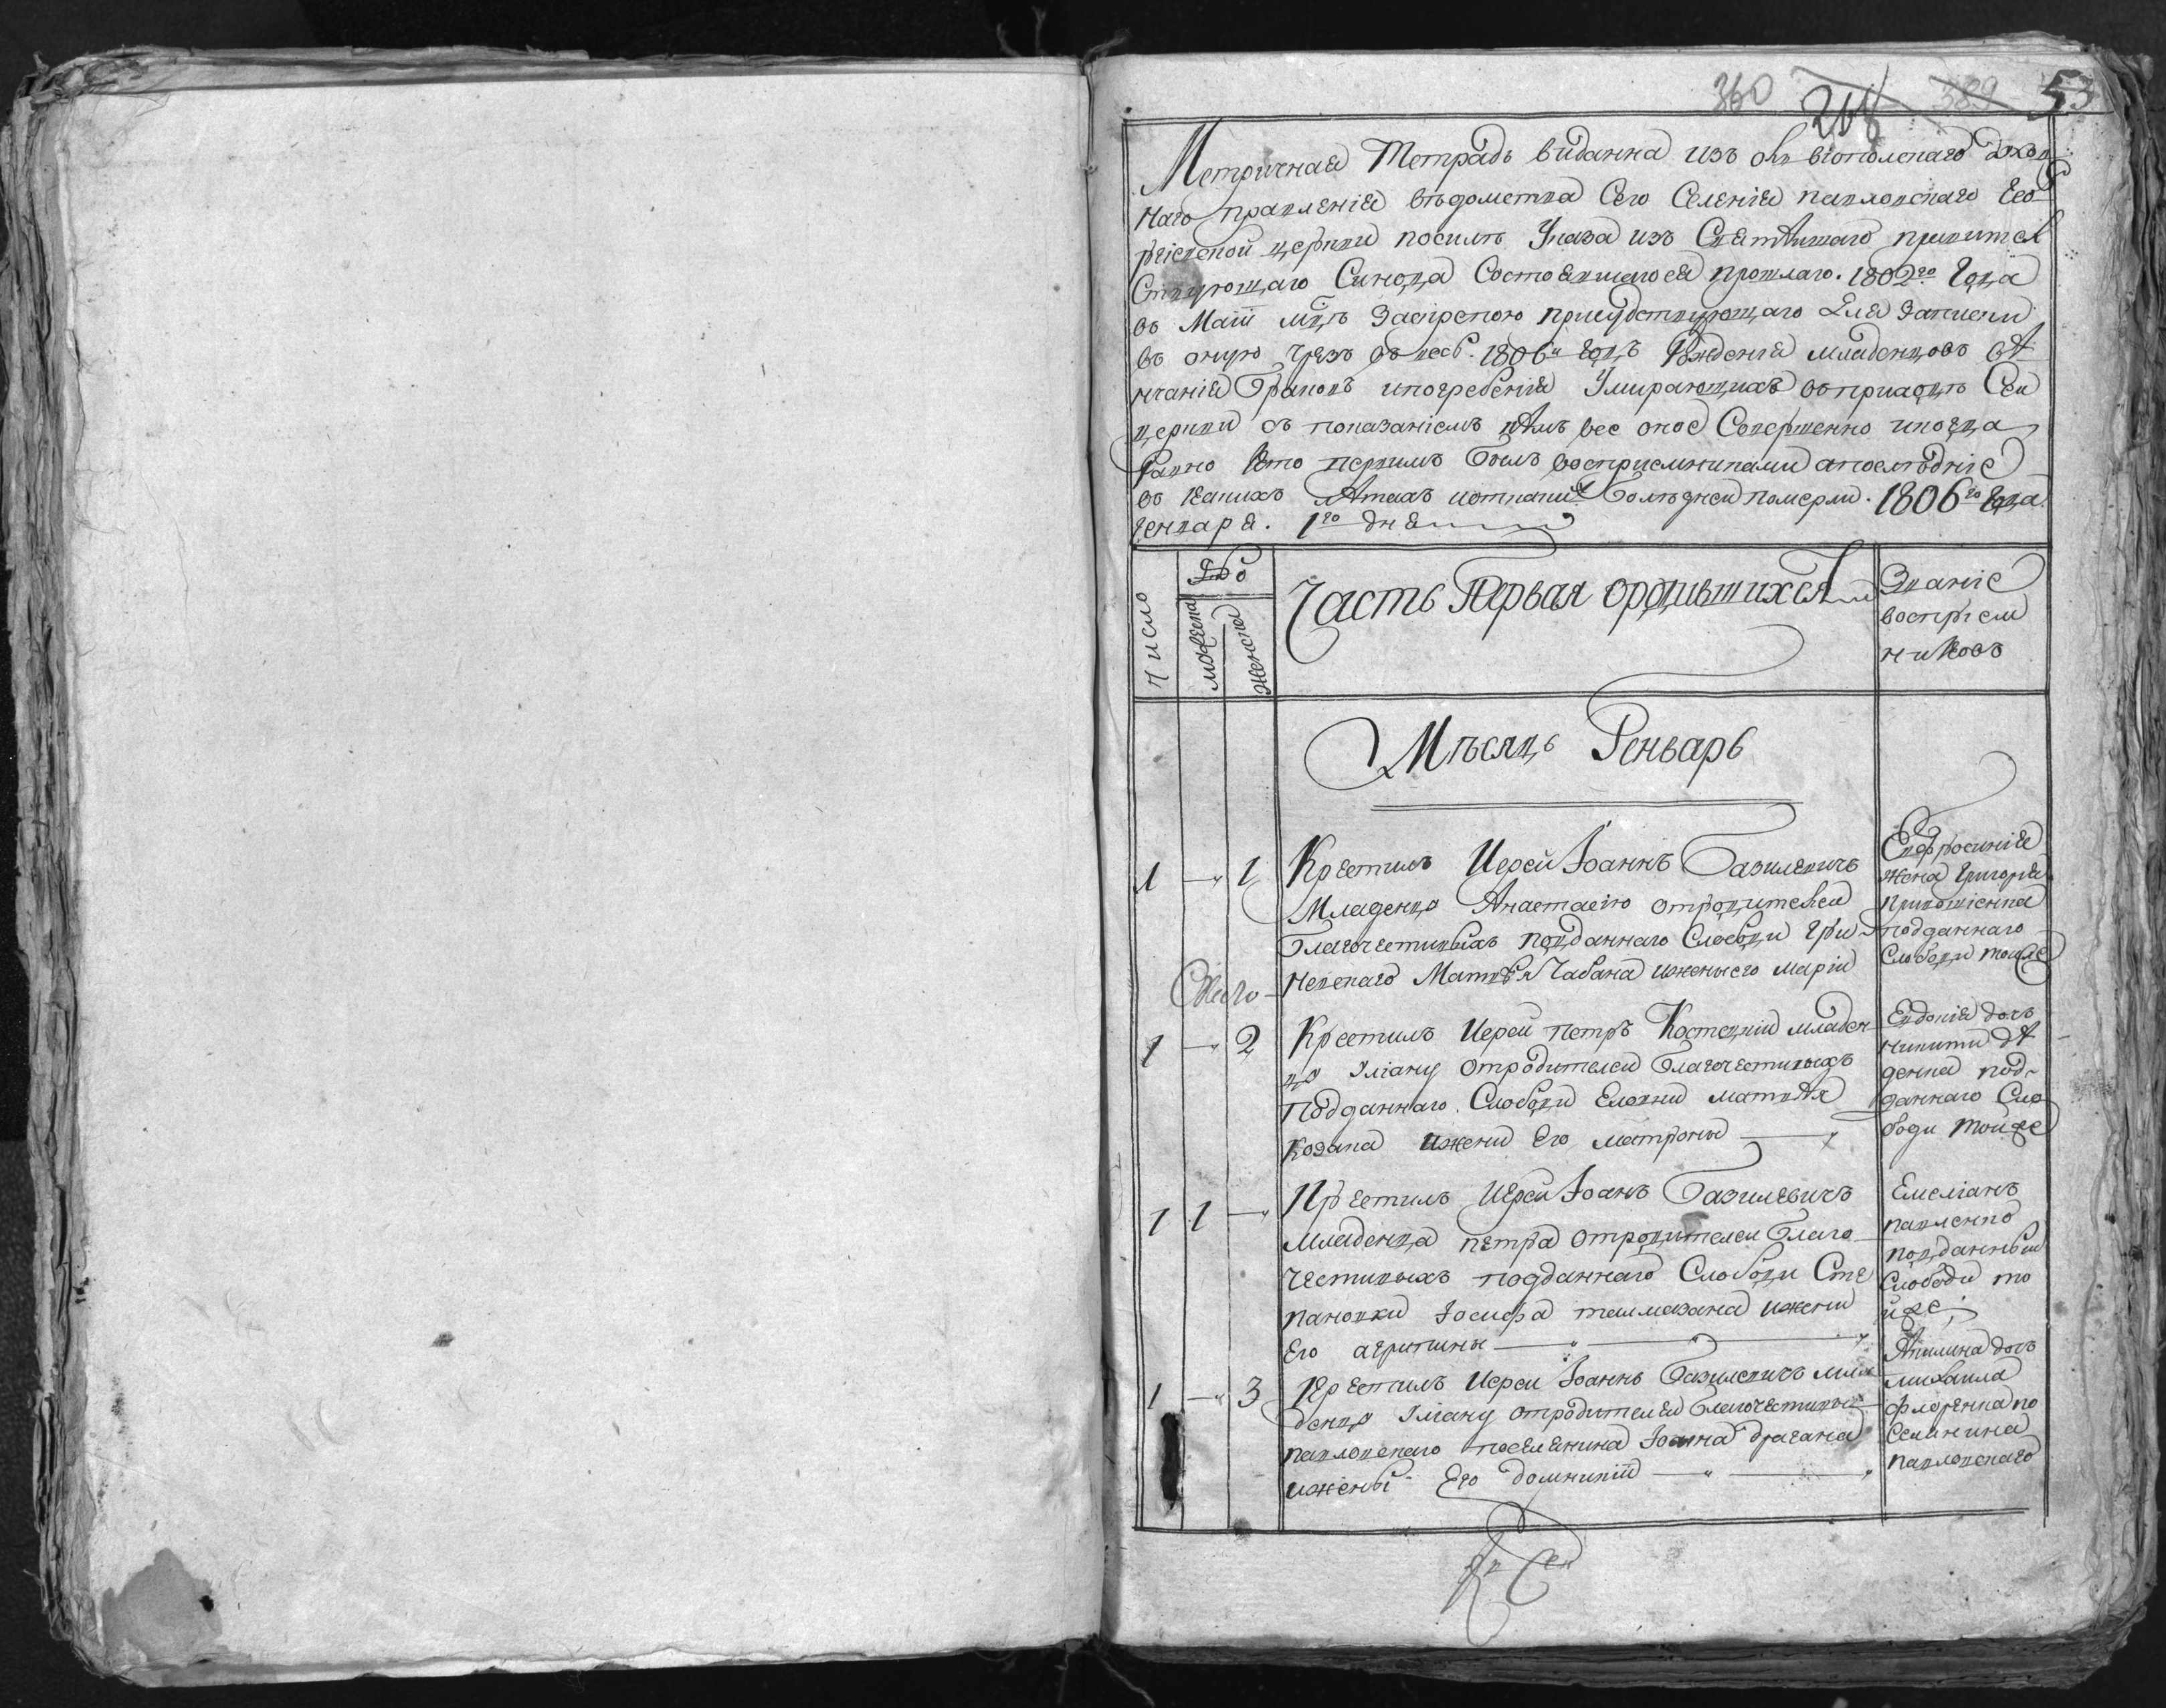 360 389 53
Метричная Тетрадь виданна изъ Ольвіополскаго духов
наго правленія въдомства Сего Селенія павловскаго Гео
ргіевской церкви посилѣ Указа изъ Святѣйшаго правител
Ствующаго Синода Состоявшагося прошлаго. 1802го Года
въ Маіи мцѣ Заскрепою присудствующаго для записки
въ оную чрезъ весь. 1806й годъ Рожденія младенцовъ вѣ
нчанія браковъ ипогребенія Умирающихъ вприходѣ Сей
церкви съ показаніемъ кѣмъ все оное Совершенно икогда
Равно Кто первимъ былъ воспріемниками апослѣдніе
въ Какихъ лѣтахъ иоткакихъ болѣзней померли. 1806го Года
генваря. 1го дня
Число
мужеска
женска
Часть Первая ородившихся
Званіе
воспріем
никовъ
Мѣсяцъ Геньварь
1 — 1
Крестилъ Иерей Іоаннъ Базилевичъ
Младенца Анастасію отродителей
Благочестивыхъ подданнаго Слободи Гри
невскаго Матвѣя Чабана иженыего марій
Евфросинія
жена Григорія
подданнаго
Слободи тойже
1 — 2
Крестилъ Иерей петръ Костецкій младен
ца Уліану отродителей благочестивыхъ
Подданнаго Слободи Еланки матвѣя
Козака ижени Его матроны
Евдокія дочь
никити дѣ
денка под
даннаго Сло
боди тойже
1 1 —
Крестилъ Иерей Іоанъ Базилевичъ
младенца петра отродителей благо
честивыхъ подданнаго Слободи Сте
пановки Іосифа талмазана ижени
Его агрипины
Емеліанъ
павленко
подданный
Слободи то
йже
1 — 3
Крестилъ Иерей Іоаннъ Базилевичъ мла
денца Уліану отродителей благочестивых
павловскаго поселянина Іоанна драгана
ижены Его домникіи
Акилина дочь
михаила
флоренка по
Селянина
павловскаго